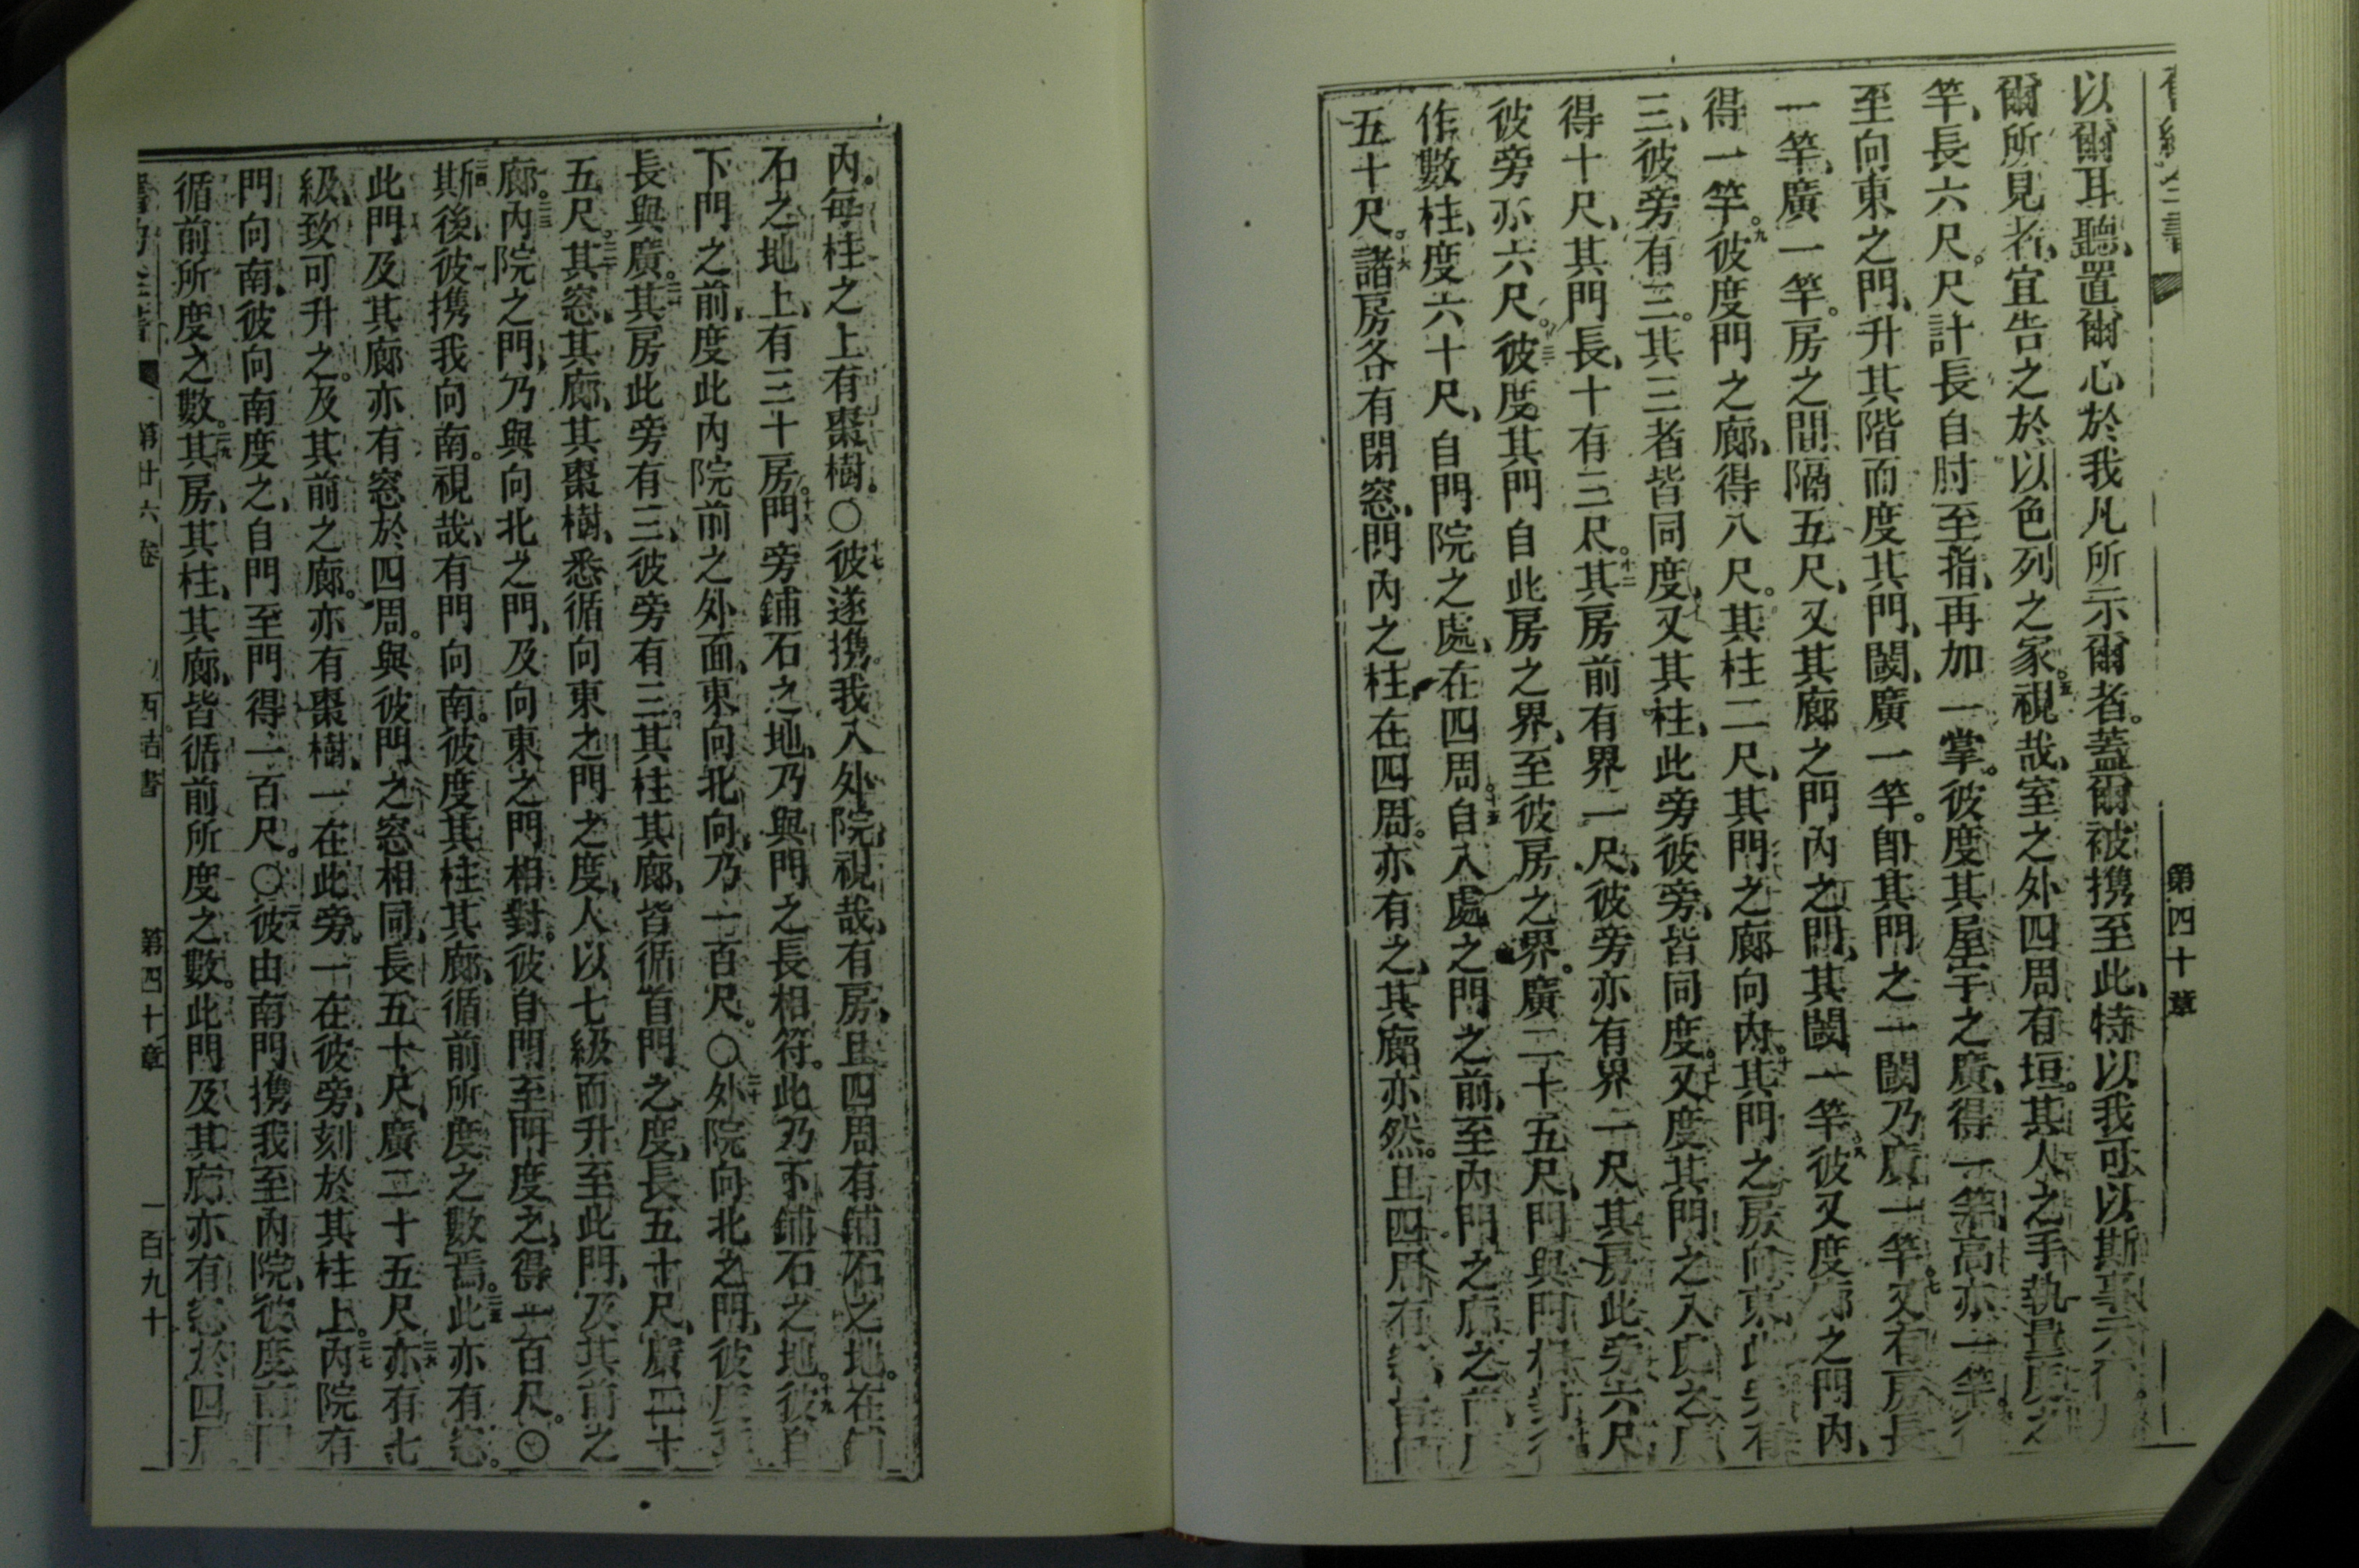 第四十章
以爾耳聽、置爾心於我凡所示爾者。蓋爾被携至此、特以我可以斯事示
爾所見者、宜告之於以色列之家。五視哉、室之外四周有垣。其人之手執量度之
竿、長六尺。尺計長自肘至指、再加一掌。彼度其屋宇之廣、得一竿、高亦一竿。
至向東之門、升其階而度其門、閾、廣一竿。卽其門之一閾乃廣一竿。七又有房長
一竿、廣一竿。房之間隔五尺、又其廊之門內之門、其閾一竿。八彼又度廊之門內、
得一竿。九彼度門之廊、得八尺。其柱二尺、其門之廊向內。十其門之房向東、此旁有
三、彼旁有三。其三者皆同度、又其柱、此旁彼旁、皆同度。十一又度其門之入處之
得十尺、其門長、十有三尺。十二其房前有界一尺、彼旁亦有界一尺其房此旁六尺
彼旁亦六尺。十三彼度其門自此房之界、至彼房之界。廣二十五尺、門與門相對
作數柱、度六十尺、自門院之處、在四周。十五自入處之門之前、至內門之廊之前
五十尺。十六諸房各有閉窓、門內之柱、在四周。亦有之、其廊亦然。且四周有
內。每柱之上有棗樹。〇十七彼遂携我入外院、視哉、有房、且四周有鋪石之地。在鋪
石之地上、有三十房。十八門旁鋪石之地、乃與門之長相符。此乃下鋪石之地。十九彼自
下門之前、度此內院前之外面、東向北向、乃一百尺。〇二十外院向北之門、彼度其
長與廣。二一其房此旁有三、彼旁有三。其柱其廊、皆循首門之度、長五十尺、廣二十
五尺。二二其窓、其廊、其棗樹、悉循向東之門之度、人以七級而升至此門、及其前之
廊。二三內院之門、乃與向北之門、及向東之門相對。彼自門至門度之、得一百尺。〇
二四斯後、彼携我向南。視哉、有門向南。彼度其柱其廊、循前所度之數焉。二五此亦有窓。
此門及其廊亦有窓於四周。與彼門之窓相同、長五十尺、廣二十五尺、二六亦有七
級、致可升之。及其前之廊。亦有棗樹、一在此旁。一在彼旁、刻於其柱上。二七內院有
門向南、彼向南度之、自門至門得一百尺。〇二八彼由南門携我至內院、彼度南門
循前所度之數。二九其房、其柱、其廊、皆循前所度之數。此門及其廊亦有窓於四周
第廿六卷 以西結書 第四十章 一百九十